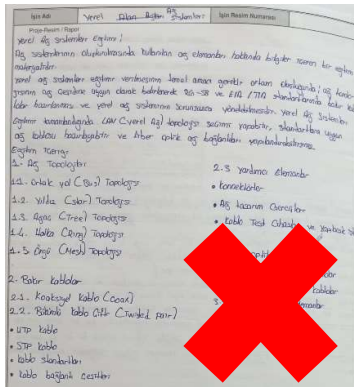 İşin Adı Yerel Alan Ağları Ağ Sistemleri İşin Resim Numarası
Proje-Resim / Rapor
Yerel Ağ Sistemleri Eğitimi ;
Ağ sistemlerinin oluşturulmasında kullanılan ağ elemanları hakkında bilgiler içeren bir eğitim
materyalidir.
Yerel ağ sistemleri eğitimi verilmesinin temel amacı gerekli ortam
ağ çeşidine uygun olarak EIA / TIA standartlarında
kablo hazırlanması ve yerel ağ sistemini sorunsuzca yönetebilmektir. Yerel Ağ Sistemleri
Eğitimi tamamlandığında LAN (Yerel Ağ) topolojisi seçimi yapabilir, standartlara uygun
ağ kablosu hazırlayabilir ve fiber optik ağ bağlantıları yapılandırabilirsiniz.
Eğitim İçeriği
1. Ağ Topolojileri
1.1. Ortak yol (Bus) Topolojisi
1.2. Yıldız (Star) Topolojisi
1.3. Ağaç (Tree) Topolojisi
1.4. Halka (Ring) Topolojisi
1.5 Örgü (Mesh) Topolojisi
2. Bakır Kablolar
2.1. Koaksiyel Kablo (Coax)
2.2. Bükümlü Kablo Çifti (Twisted pair)
• UTP Kablo
• STP Kablo
• Kablo Standartları
• Kablo bağlantı çeşitleri
2.3 Yardımcı Elemanlar
• Konnektörler
• Ağ Kazanım Gereçleri
• Kablo Test Cihazları ve Yapılacak